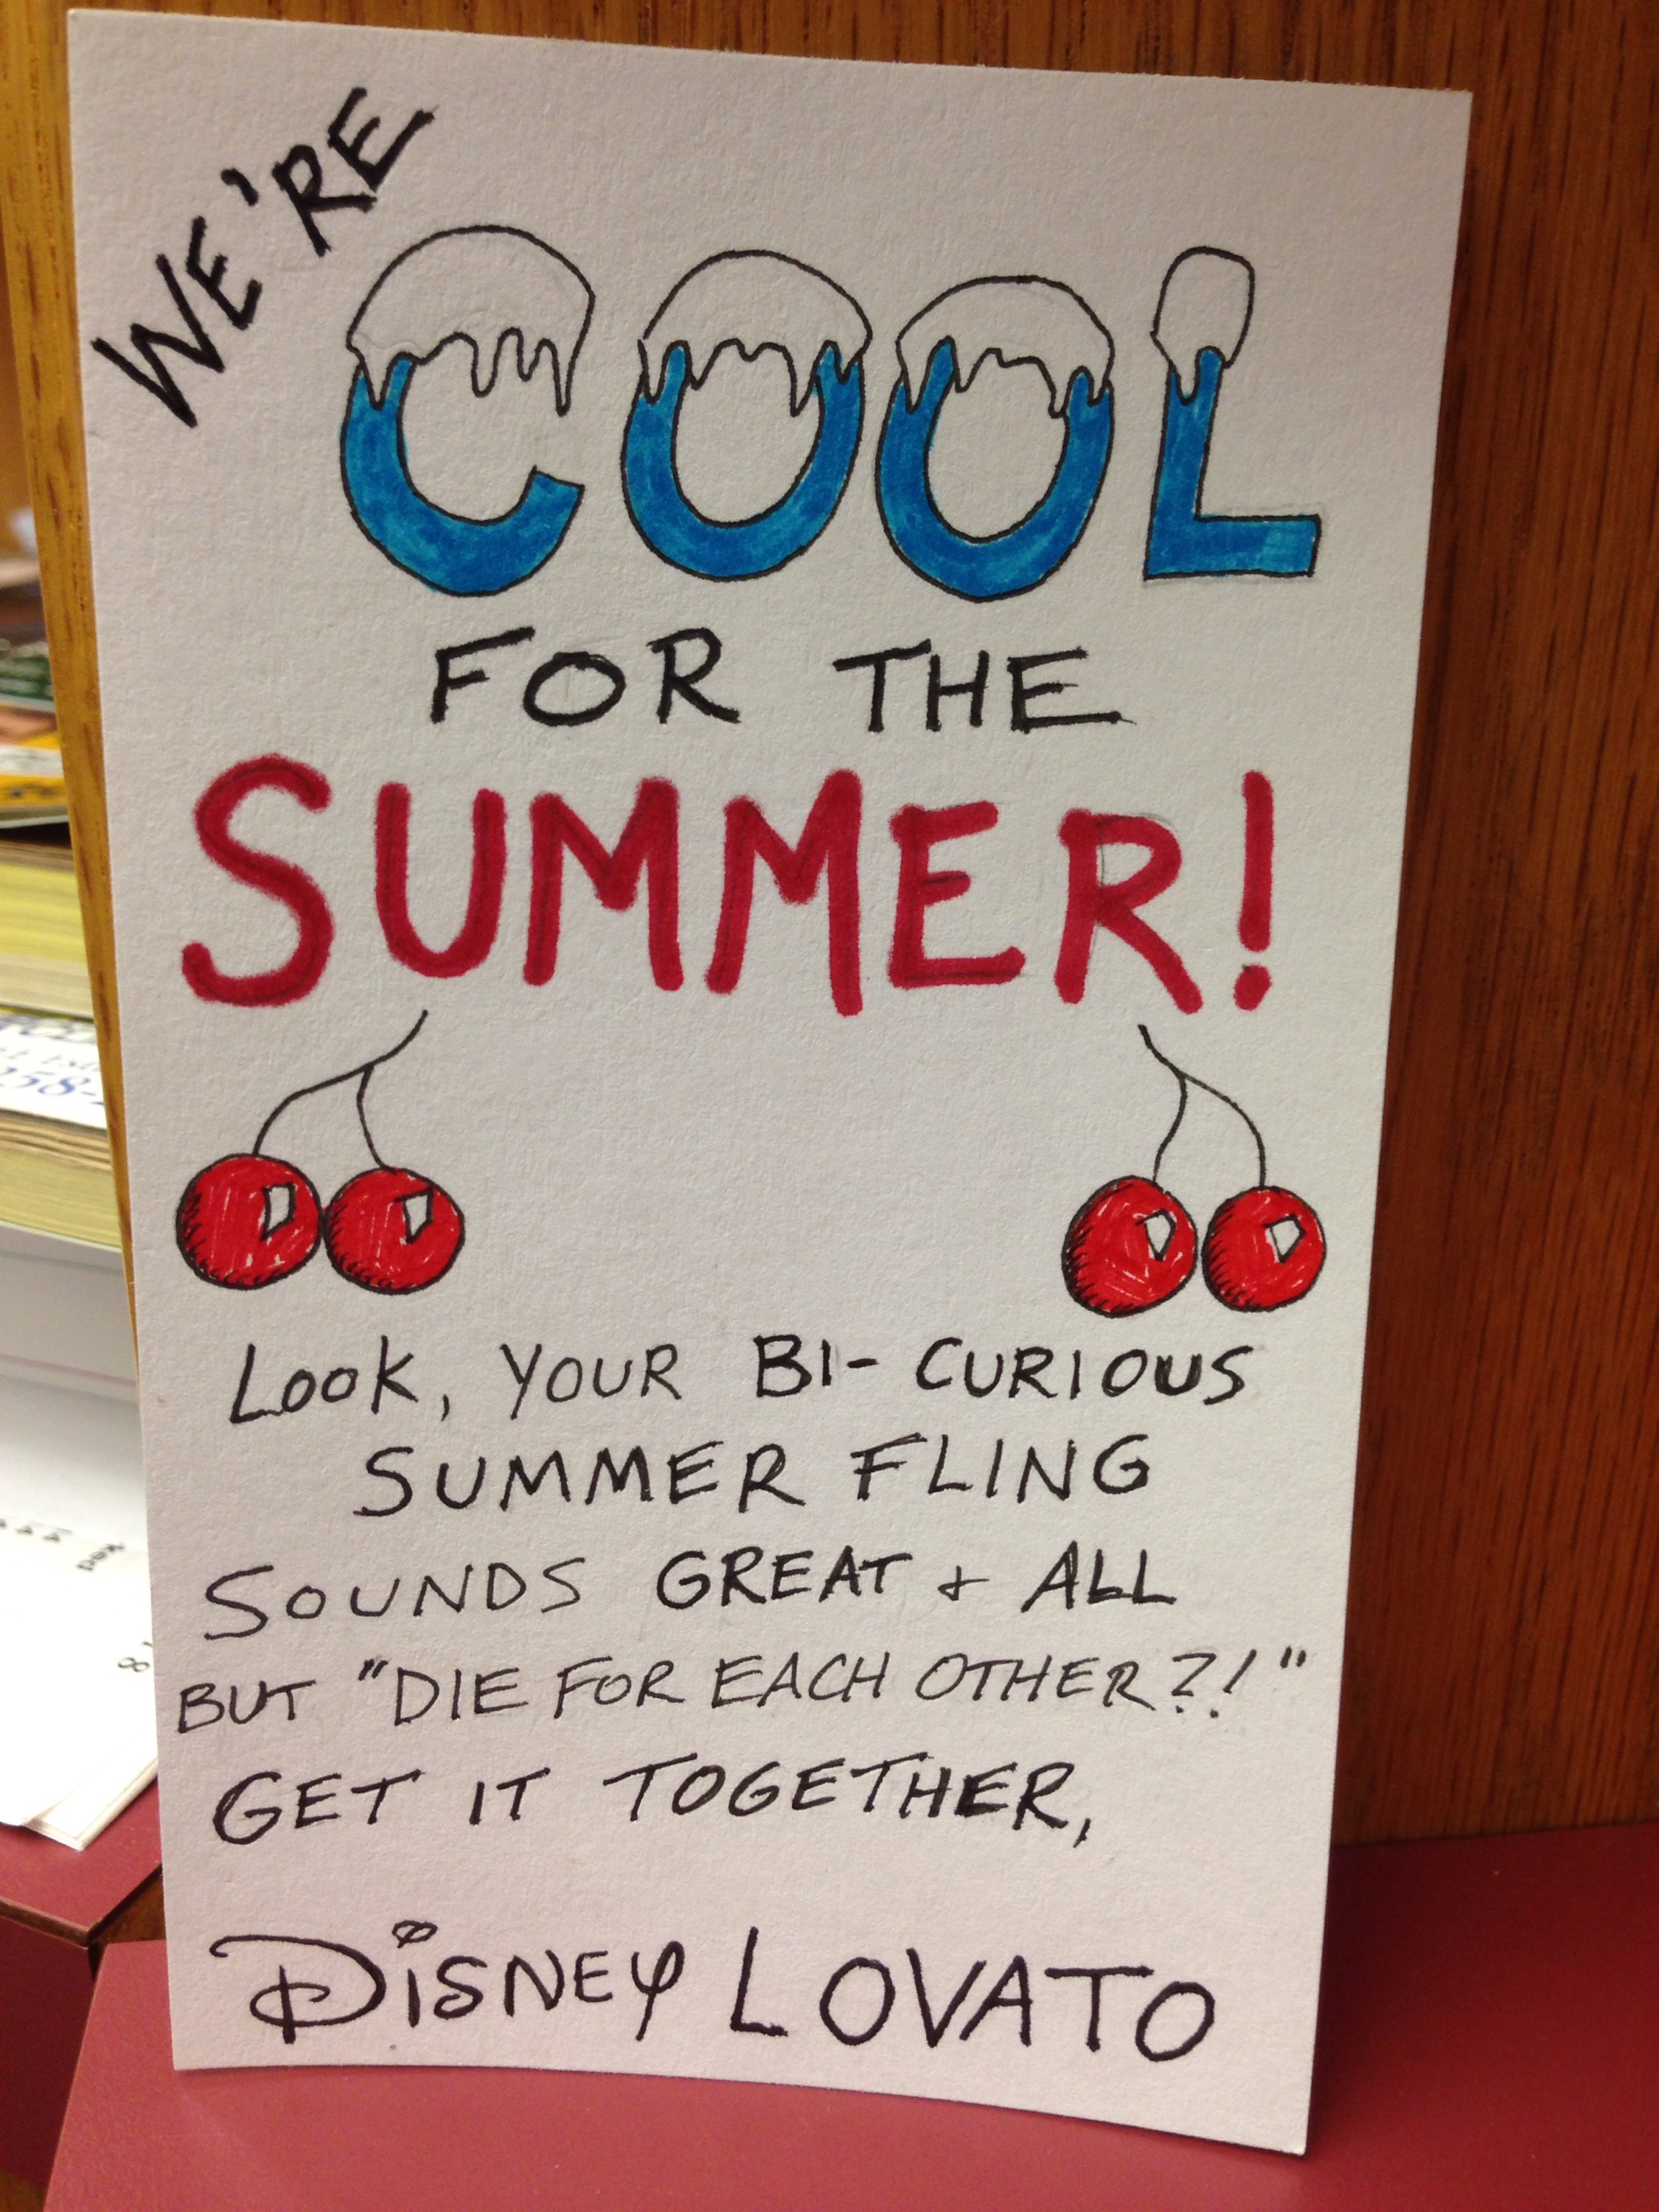 WE'RE
COOL
FOR THE
SUMMER!
LOOK, YOUR BI-CURIOUS
SUMMER FLING
SOUNDS GREAT + ALL
BUT "DIE FOR EACH OTHER?!"
GET IT TOGETHER,
DiSNEY LOVATO